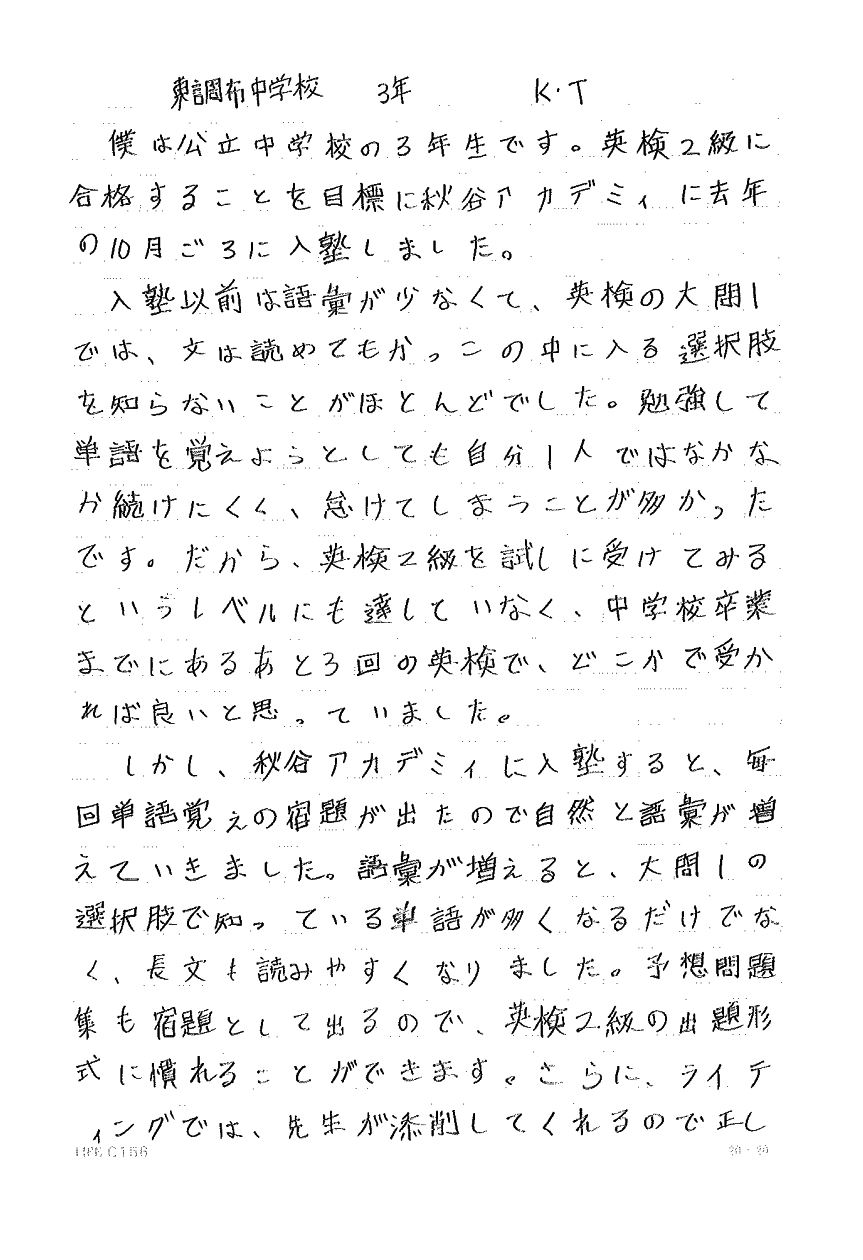 東調布中学校 3年 K・T
僕は公立中学校の3年生です。英検2級に
合格することを目標に秋谷アカデミィに去年
の10月ごろに入塾しました。
入塾以前は語彙が少なくて、英検の大問1
では、文は読めてもかっこの中に入る選択肢
を知らないことがほとんどでした。勉強して
単語を覚えようとしても自分1人ではなかな
か続けにくく、怠けてしまうことが多かった
です。だから、英検2級を試しに受けてみる
というレベルにも達していなく、中学校卒業
までにあるあと3回の英検で、どこかで受か
れば良いと思っていました。
しかし、秋谷アカデミィに入塾すると、毎
回単語覚えの宿題が出たので自然と語彙が増
えていきました。語彙が増えると、大問1の
選択肢で知っている単語が多くなるだけでな
く、長文も読みやすくなりました。予想問題
集も宿題として出るので、英検2級の出題形
式に慣れることができます。さらに、ライテ
ィングでは、先生が添削してくれるので正し
LIFE C156 20×20